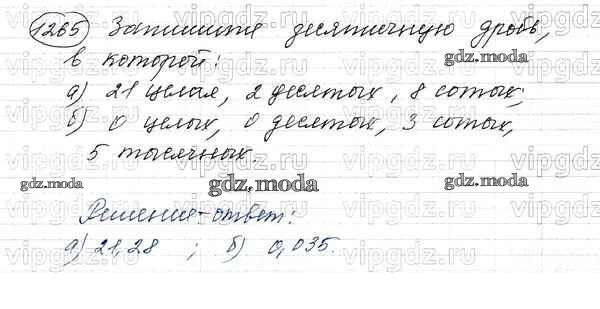 1265 Запишите десятичную дробь,
в которой:
а) 21 целая, 2 десятых, 8 сотых;
б) 0 целых, 0 десятых, 3 сотых,
5 тысячных.
Решение-ответ:
а) 21,28 ; б) 0,035.
gdz.moda
gdz.moda
gdz.moda
gdz.moda
vipgdz.ru